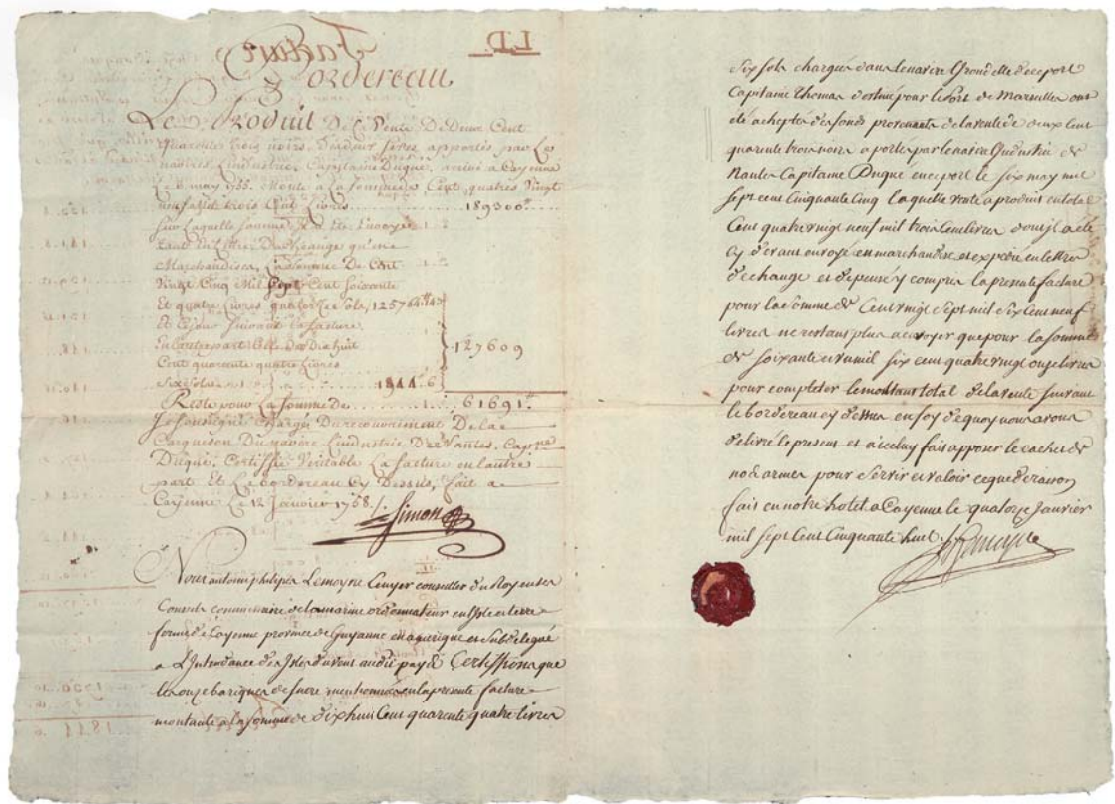 Bordereau
Le Produit De la Vente De Deux Cent
quarente trois noirs, De divers sexes apportés par Le
navire L'industrie, Capitaine Duqué, arrivé a Cayenne
Le 6 may 1755. Monte a La Somme de Cent, quatres Vingt
neuf mil trois Cent Livres 189300ᵗ
Sur Laquelle Somme Il a Eté Envoyé
tant En Lettre De Change qu'en
Marchandises, La Somme De Cent
Vingt Cinq Mil Sept Cent Soixante
Et quatre Livres quatorze Sols, 125764ᵗᵗ 14ˢ
Et Ce jour Suivant La facture
En L'autre part Celle De Dix huit
Cent quarente quatre Livres
Six Sols 1844. 6
127609
Reste pour La Somme De 61691ᵗᵗ
Je Soussigné Chargé Du recouvrement De la
Cargaison Du navire L'industrie De Nantes, Capne
Duqué, Certiffie Veritable La facture en L'autre
part Et Le bordereau Cy Dessus, fait a
Cayenne Le 12 Janvier 1758 /.
Simon
Nous antoine philipes Lemoyne Ecuyer conseiller du Roy en ses
Conseils commissaire de la marine ordonnateur en l'Isle et terre
ferme de Cayenne province de Guyanne en amerique et Subdelegué
a L'Intendance des Isles du vent audit pays Certiffions que
les onze bariques de sucre mentionnées en la presente facture
montante a la somme de dixhuit Cens quarente quatre livres
six sols chargées dans le navire Grondelle de ce port
Capitaine Thomas destiné pour le Port de Marseilles ont
été acheptés des fonds provenants de la vente de deux Cent
quarente trois noirs aportés par le navire L'Industrie de
Nantes Capitaine Duqué en ce port le six may mil
sept cens Cinquante Cinq laquelle vente a produit en total
Cent quatre vingt neuf mil trois Cens livres dont il a été
cy devant envoyé en marchandises et expedié en lettres
d'echange et depense y compris la presente facture
pour la somme de Cent vingt sept mil six cens neuf
livres ne restant plus a envoyer que pour la somme
de soixante et un mil six cens quatre vingt onze livres
pour completer le montant total de la vente suivant
le bordereau cy dessus en foy de quoy nous avons
delivré le present et a iceluy fait apposer le cachet de
nos armes pour servir et valoir ce que de raison
fait en notre hotel a Cayenne le quatorze Janvier
mil sept Cens Cinquante huit
Lemoyne